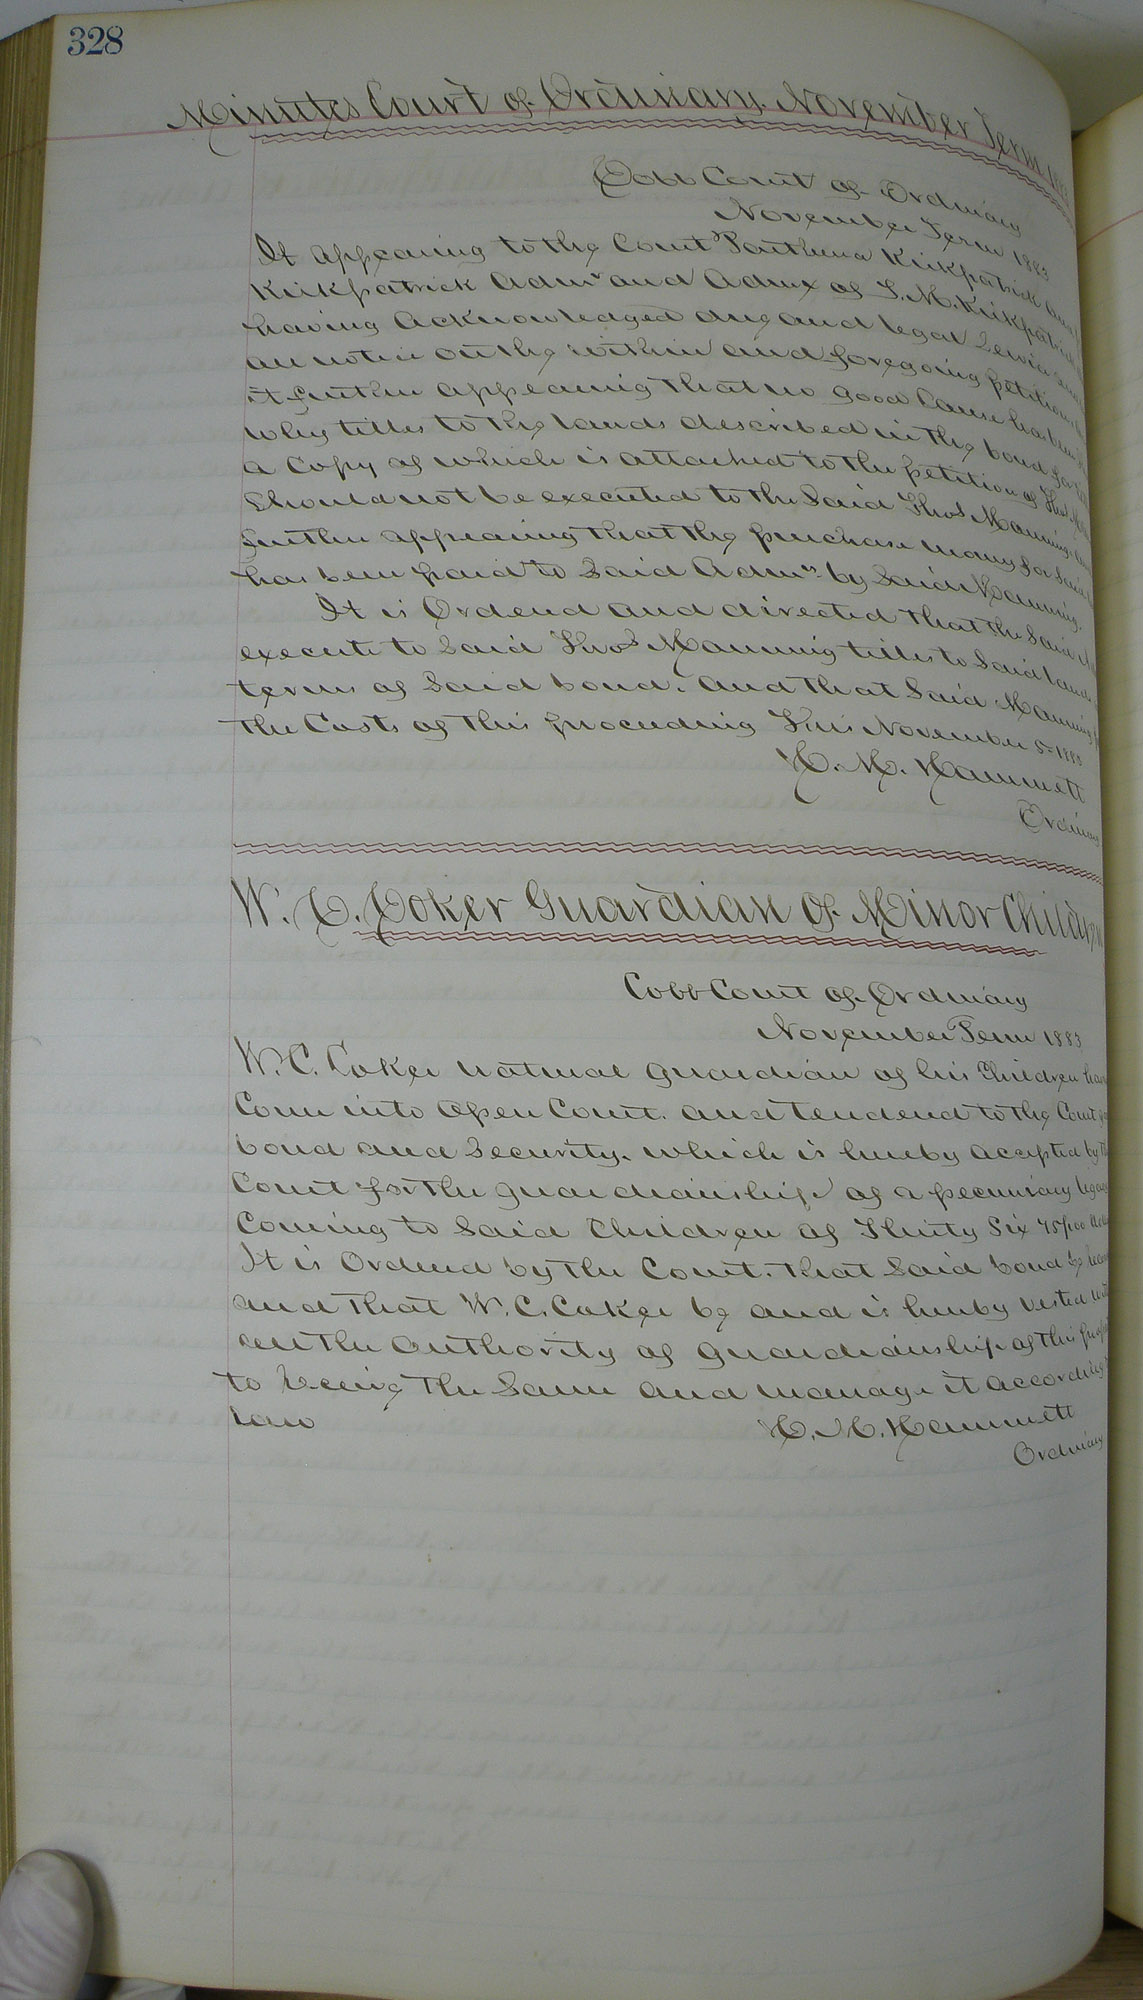 328
Minutes Court of Ordinary. November Term. 1883
Cobb Court of Ordinary
November Term 1883
It appearing to the Court Parthena Kirkpatrick and
Kirkpatrick Admr and Admx of J. M. Kirkpatrick
having acknowledged due and legal Service and
an notice on the within and foregoing petition,
it further appearing that no good Cause has been
why titles to the lands described in the bond for
a Copy of which is attached to the petition of Thos
Should not be executed to the Said Thos Manning.
further appearing that the purchase money for Said
has been paid to Said Admr by Said Manning.
It is Ordered and directed that the Said
execute to Said Thos Manning titles to Said lands
terms of Said bond. and that Said Manning
the Costs of this proceeding This November 5th 1883
C. M. Hammett
Ordinary
W. C. Coker Guardian of Minor Children
Cobb Court of Ordinary
November Term 1883
W. C. Coker natural guardian of his Children
Come into Open Court. and tendered to the Court
bond and Security. which is hereby accepted by
Court for the guardianship of a pecuniary legacy
Coming to Said Children of Thirty Six 75/100
It is Ordered by the Court. that Said bond be
and that W. C. Coker be and is hereby vested with
all the authority of guardianship of this
to Receive the Same and manage it according
law C. M. Hammett
Ordinary